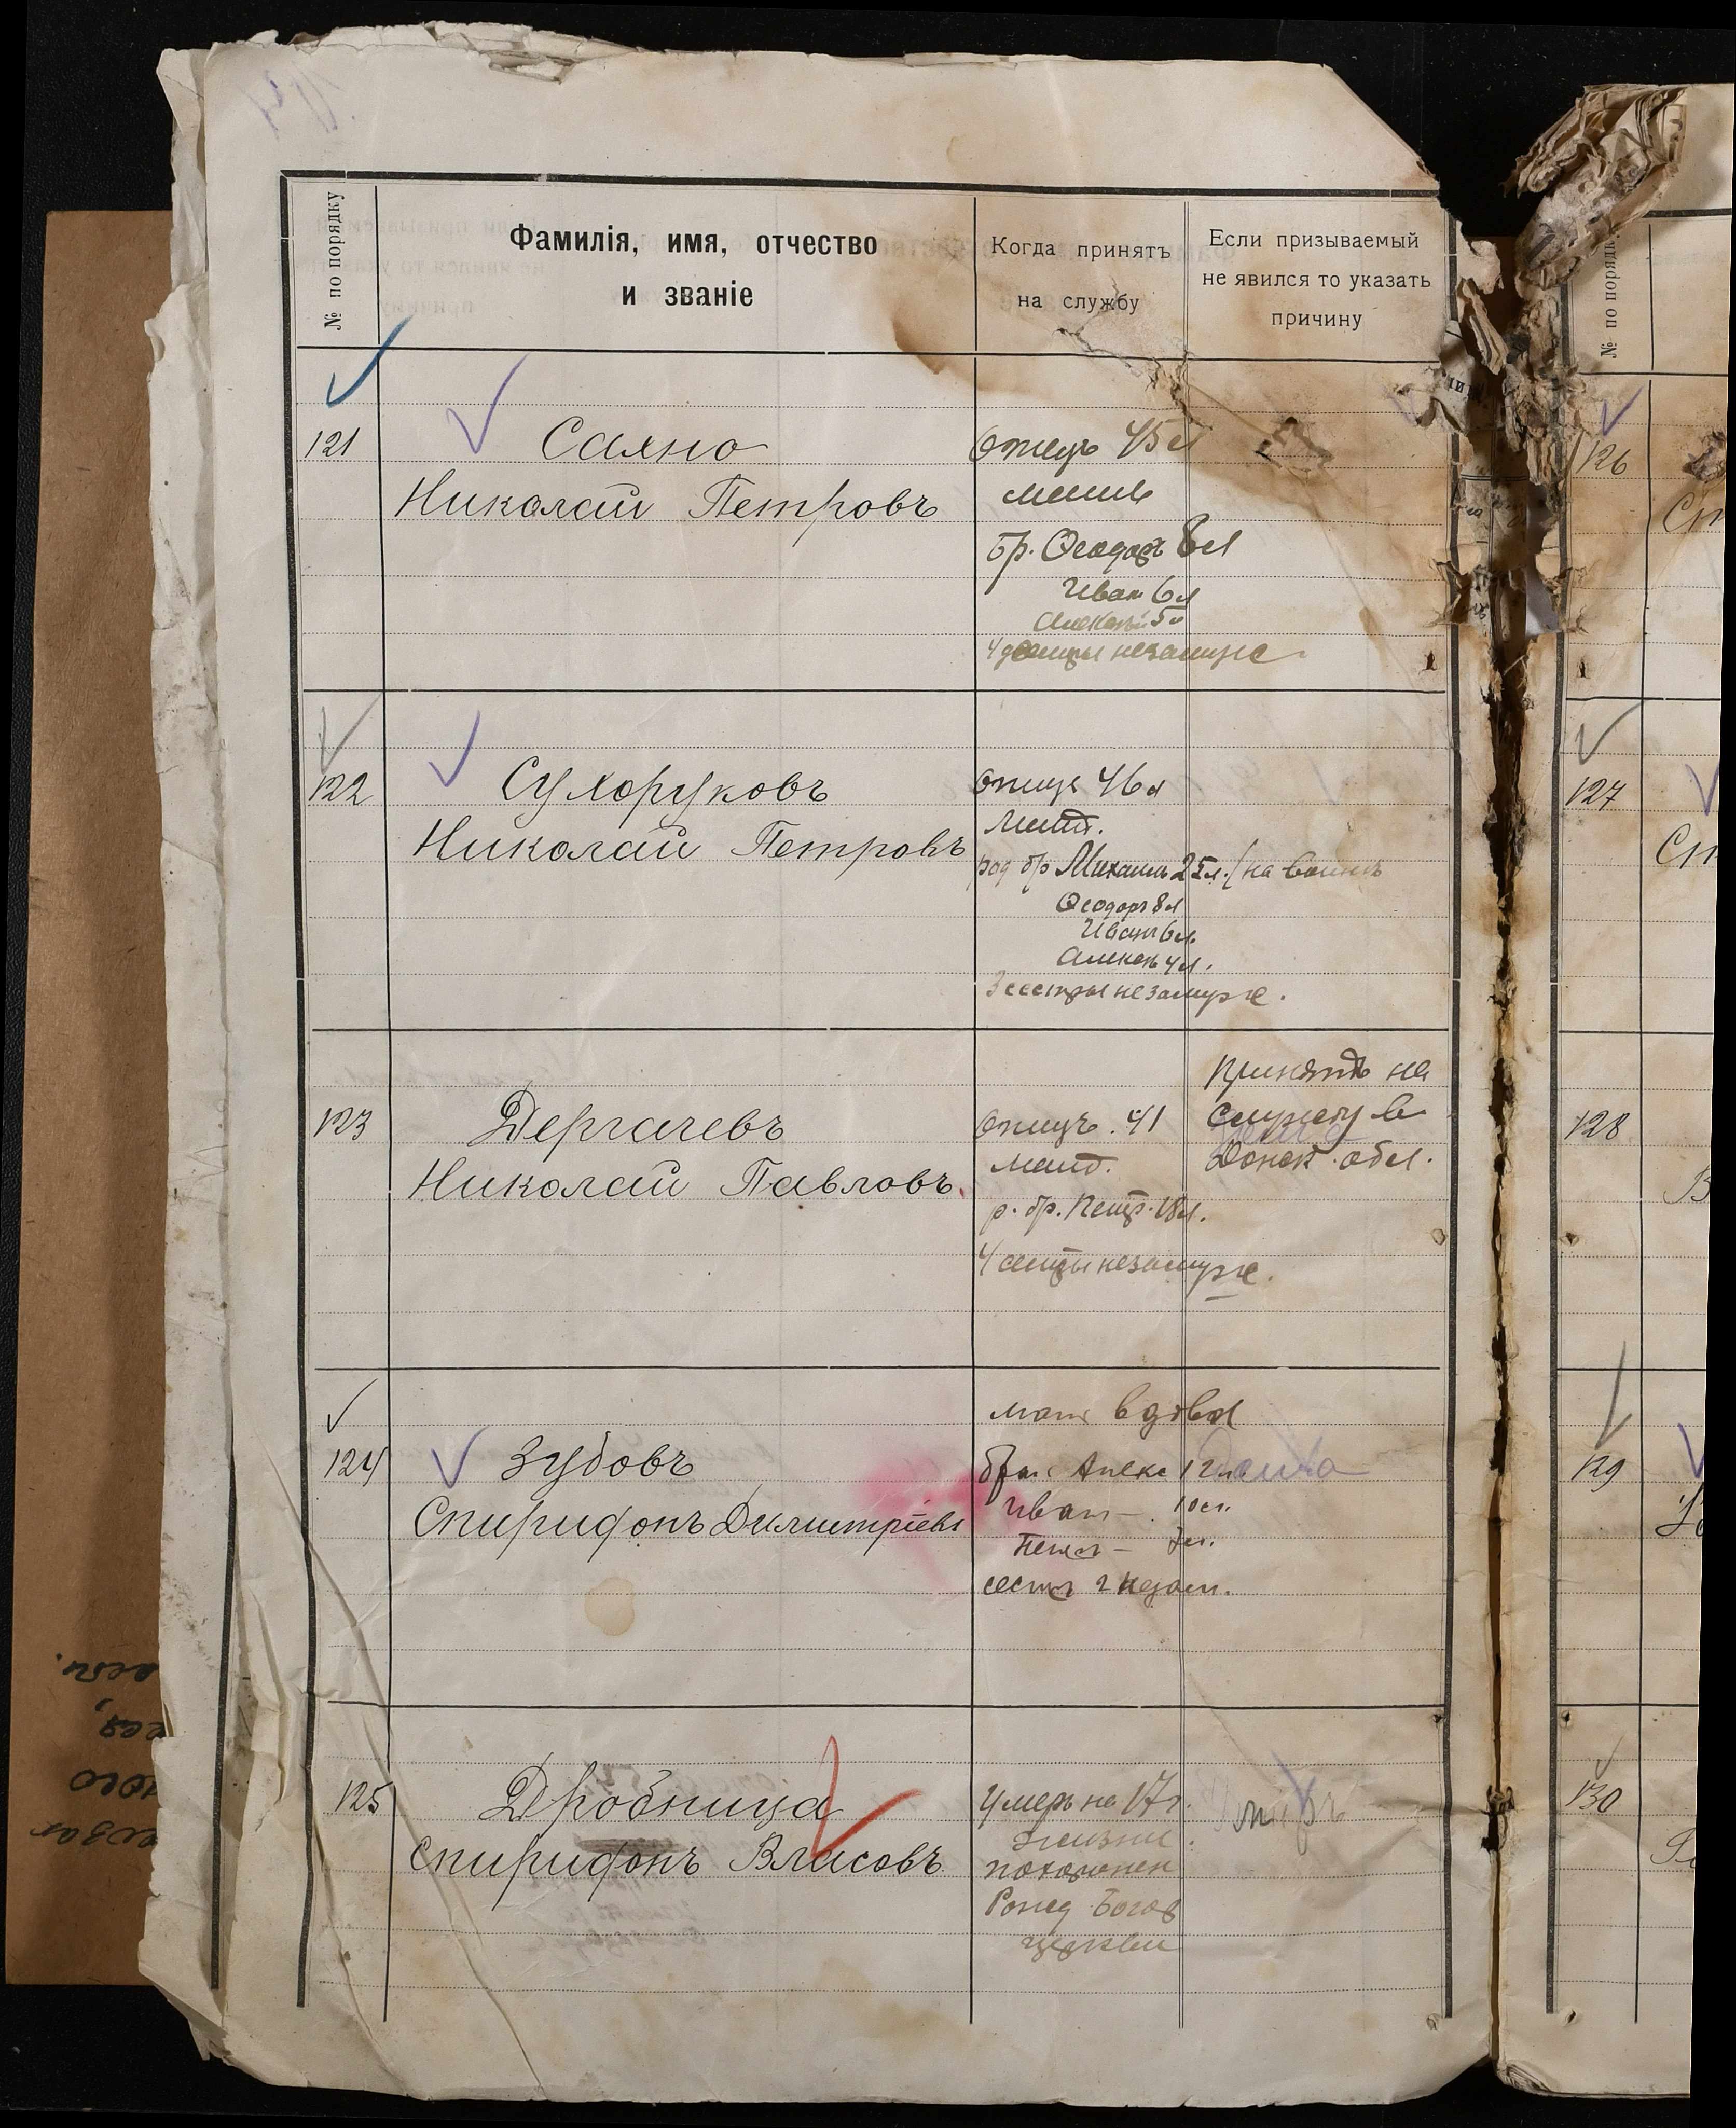 № по порядку
Фамилія, имя, отчество
и званіе
Когда принятъ
на службу
Если призываемый
не явился то указать
причину
121
Сахно
Николай Петровъ
Отецъ 45 л
мать
бр. Ѳеодоръ 8 л
Иван 6 л
Алексей 5 л
4 сестры незамуже
122
Сухоруковъ
Николай Петровъ
Отецъ 46 л
Мать.
род бр Михаилъ 25 л. (на войнѣ
Ѳеодоръ 8 л
Иванъ 6 л.
Алексѣй 4 л.
3 сестры незамуже.
123
Дергачевъ
Николай Павловъ.
Отецъ. 41
мать.
р. бр. Петр. 18 л.
4 сестры незамуже.
Принятъ на
службу в
Донск. обл.
124
Зубовъ
Спиридонъ Димитріевъ
мать вдова
брат Алекс 12 л
Иван — 10 л.
Петр — 7 л.
сестр 2 незам.
125
Дробница
Спиридонъ Власовъ
Умеръ на 17 г.
жизни.
похоронен
Рожд. Богор
церкви
Умеръ
№ по порядку
126
Сп
127
Сп
128
В
129
130